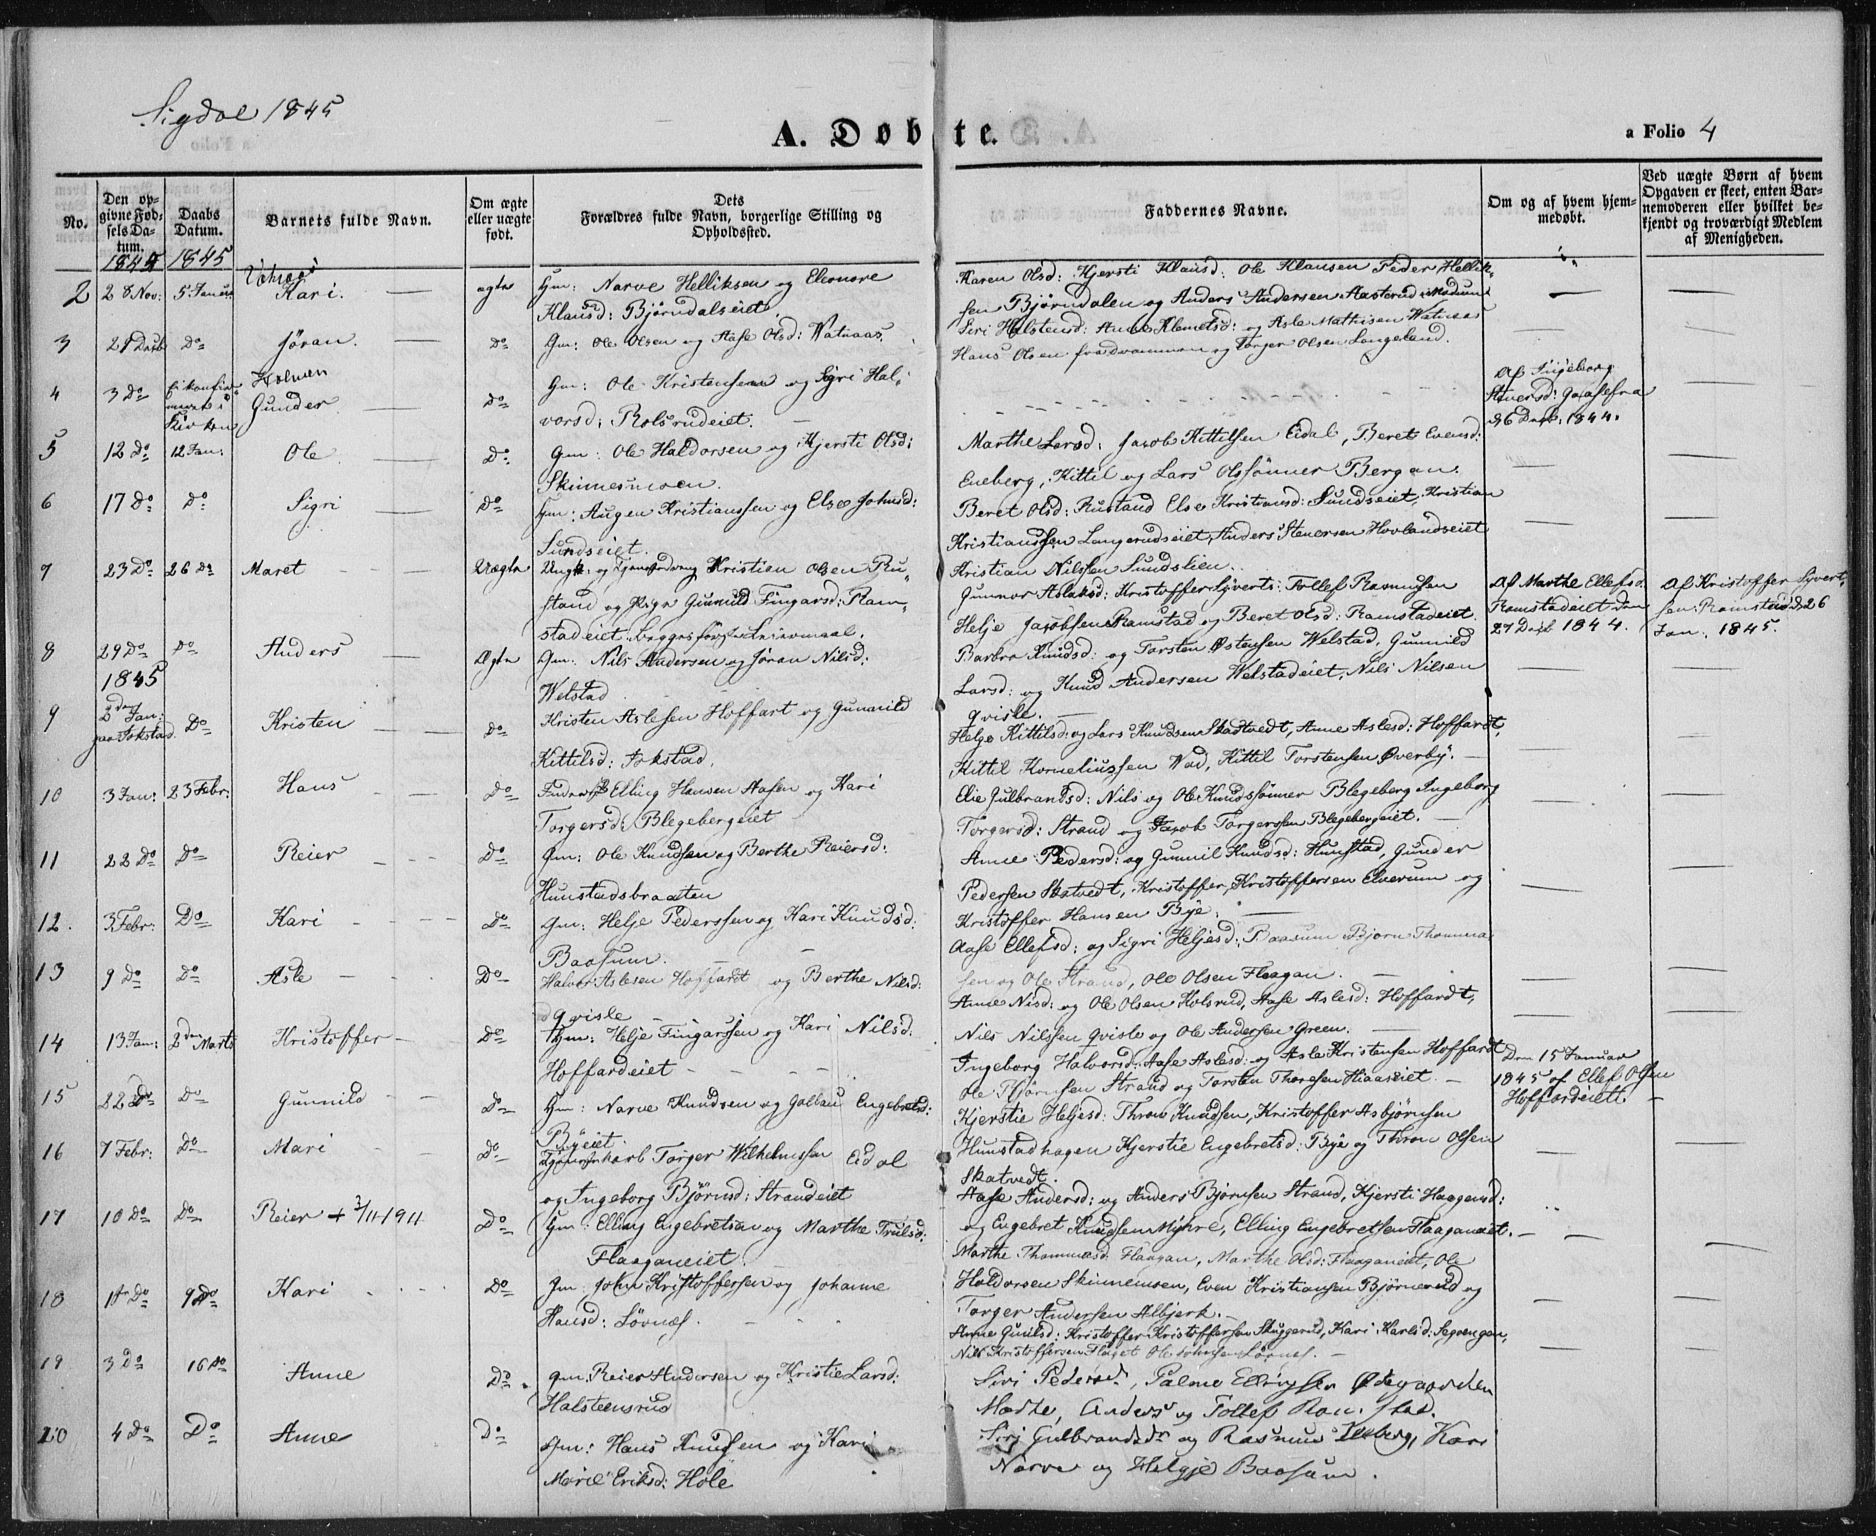 Sigdal 1845
A. Døbte.
a Folio 4
No.
Den op-
givne Fød-
sels Da-
tum.
1844
Daabs
Datum.
1845
Barnets fulde Navn.
Om ægte
eller uægte
født.
Dets
Forældres fulde Navn, borgerlige Stilling og
Opholdssted.
Faddernes Navne.
Om og af hvem hjem-
medøbt.
Ved uægte Børn af hvem
Opgaven er skeet, enten Bar-
nemoderen eller hvilket be-
kjendt og troværdigt Medlem
af Menigheden.
2 28 Nov: 5 Januar Kari. ægte Hm: Narve Helliksen og Eleonore
Klausd: Bjørndalseiet.
Karen Olsd: Kjersti Klausd: Ole Klausen Peder Hellik-
sen Bjørndalen og Anders Andersen Aasterud Modum
3 Do Jøran. Do Gm: Ole Olsen og Aase Olsd: Watnaas.
Siri Halstensd: Anne Klemetsd: og Asle Mathisen Watnaas
Hans Olsen fra Drammen og Torger Olsen Langeland.
4 3 Do i Kirken Gunder Do Gm: Ole Kristensen og Sigri Hal-
vorsd: Rolsrudeiet.
Af Ingeborg
26 Decb: 1844.
5 12 Do 12 Jan: Ole Do Gm: Ole Haldorsen og Kjersti Olsd:
Skinnesmoen.
Marthe Larsd: Jacob Kittilsen Eidal, Beret Evensd:
Eneberg, Kittil og Lars Olssønner Bergan.
6 17 Do Do Sigri Do Hm: Augen Kristianssen og Else Johnsd:
Sundseiet.
Beret Olsd: Rustand Else Kristiansd: Sundseiet, Kristian
Kristianssen Langerudseiet, Anders Stenersen Hovlandseiet
Kristian Nilssen Sundslien.
7 23 Do 26 Do Maret Uægte Ungk: og Kristien Olsen Ru-
stand og Pige Gunnild Fingarsd: Ram-
stadeiet. begges første Leiermaal.
Gunnor Aslaksd: Kristoffer Syverts: Tollef Rasmusen
Helje Jacobsen Ramstad og Beret Olsd: Ramstadeiet.
Af Marthe Ellefsd:
Ramstadeiet den
27 Decb 1844.
Af Kristoffer Syvert-
sen Ramstad d 26
Jan. 1845.
8 29 Do Do Anders Ægte Gm: Nils Andersen og Jøran Nilsd:
Welstad
Barbro Knudsd: og Torsten Østensen Welstad, Gunnild
Larsd: og Knud Andersen Welstadeiet, Nils Nilsen
Qvisle.
1845
9 2den Jan: paa Jokstad Do Kristen Do Kristen Aslesen Hoffart og Gunnild
Kittilsd: Jokstad.
Helge Kittilsd: og Lars Knudsen Skatvedt, Anne Aslesd: Hoffardt,
Kittil Korneliussen Wad, Kittil Torstensen Øverby.
10 3 Jan: 23 Febr: Hans Do Elling Hansen Aasen og Kari
Torgersd: Blegebergeiet
Elie Gulbrandsd: Nils og Ole Knudssønner Blegeberg Ingeborg
Torgersd: Strand og Jacob Torgerssen Blegebergeiet.
11 22 Do Do Reier Do Gm: Ole Knudsen og Berthe Reiersd:
Hunstadsbraaten
Anne Pedersd: og Gunnil Knudsd: Hunstad, Gunder
Pedersen Skatvedt, Kristoffer Kristoffersen Elverum og
Kristoffer Hansen Bye.
12. 3 Febr: Do Kari Do Gm: Helje Pederssen og Kari Knudsd:
Baosum.
Aase Ellefsd: og Sigri Heljesd: Baasum Bjørn Thomma-
sen og Ole Strand, Ole Olsen Flaagan.
13 9 Do Do Asle Do Halvor Aslesen Hoffardt og Berthe Nilsd:
Qvisle
Anne Nisd: og Ole Olsen Kolsrud, Aase Aslesd: Hoffardt,
Nils Nilssen Qvisle og Ole Andersen Green.
14 13 Jan: 2den Marts Kristoffer Do Hm: Helje Fingarssen og Kari Nilsd:
Hoffardeiet
Ingeborg Halvorsd: Aase Aslesd: og Asle Kristensen Hoffardt
Ole Bjørnsen Strand og Torsten Thoresen Hiaaseiet.
Den 15 Januar
1845 af Ellef Olsen
Hoffardeiet.
15 22 Do Do Gunnild Do Hm: Narve Knudsen og Golbau Engebretsd:
Byeiet.
Kjerstie Heljesd: Thron Knudsen, Kristoffer Asbjørnsen
Hunstadhagen Kjerstie Engebretsd: Bye og Thron Olsen
Skatvedt.
16 7 Febr: Do Mari Do Tjenestekarl Torger Wilhelmssen Eidal
og Ingeborg Bjørnsd: Strandeiet
Aase Andersd: og Anders Bjørnsen Strand, Kjersti Haagensd:
og Engebret Knudsen Myhre, Elling Engebretsen Flaaganeiet.
17 10 Do Do Reier + 3/11-1911 Do Hm: Elling Engebretsen og Marthe Trulsd:
Flaaganeiet.
Marthe Thommesd: Flaagan, Marthe Olsd: Flaaganeiet, Ole
Haldorsen Skinnemoen, Even Kristiansen Bjørnerud og
Torger Andersen Albjerk.
18 Do 9 Do Kari Do Gm: John Kristoffersen og Johanne
Hansd: Løvnes.
Anne Gunilsd: Kristoffer Kristoffersen Skuggerud, Kari Karlsd: Segvengen,
Nils Kristoffersen Flaget Ole Johnsen Løvnes.
19 3 Do 16 Do Anne Do Gm: Reier Andersen og Kristie Larsd:
Halsteensrud
Siri Pedersd, Palme Ellingsen Ødegaarden
Marthe, Anders og Tollef Ramstad.
20 4 Do Do Anne Do Gm: Hans Knudsen og Kari
Marie Eriksd: Hole
Siri Gulbrandsdr og Rasmus Ekeberg, Kari
Narve og Helgje Baosum.